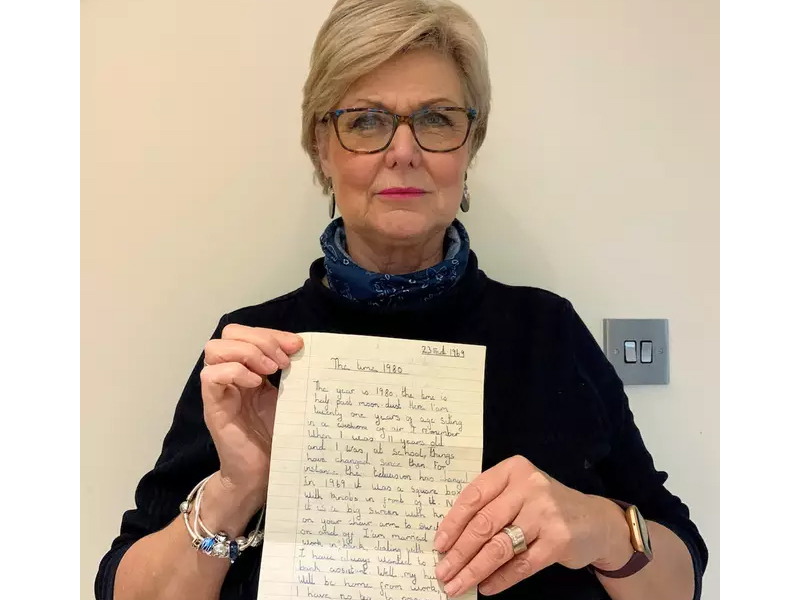 23rd 1969
The time 1980
The year is 1980. the time is
half past moon dust time I am
twenty one years of age siting
in a cushion of air I remember
When I was 11 years old
and I was at school, things
have changed since then For
instance the television has changed
In 1969 it was a square box
with knobs in front of it. N
it is a big screen with kn
on your chair arm to switch
on and off I am married
work in bank dialing with
I have always wanted to b
bank assistant. Well my hus
will be home from work,
I have no